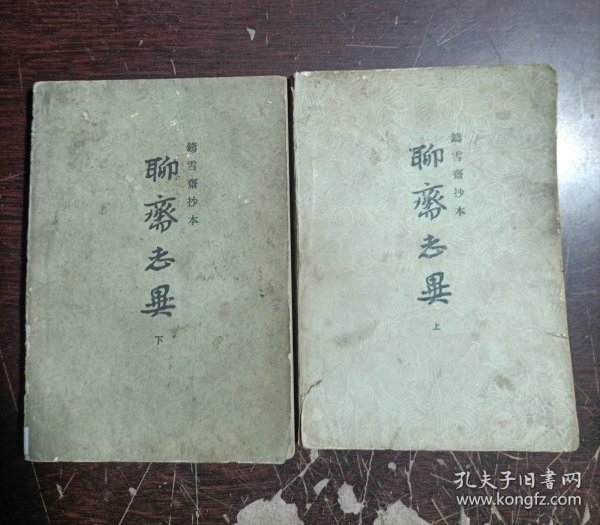 鑄雪齋抄本
聊齋志異
下
鑄雪齋抄本
聊齋志異
上
孔夫子旧书网
www.kongfz.com